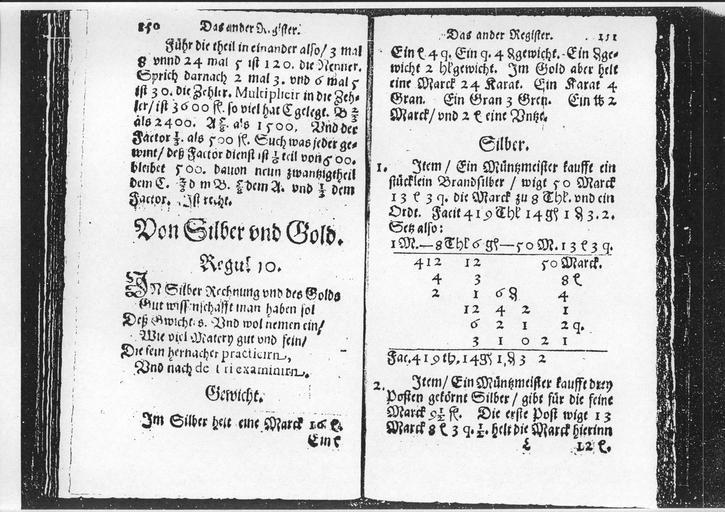 150 Das ander Register.
Führ die theil in einander also/ 3 mal
8 vnnd 24 mal 5 ist 120. die Nenner.
Sprich darnach 2 mal 3. vnd 6 mal 5
ist 30. die Zehler. Multiplicir in die Zeh-
ler/ ist 3600 fl. so viel hat C gelegt. B ⅔
als 2400. A als 1500. Vnd der
Factor als 500 fl. Such was jeder ge-
wint/ deß Factor dienst ist teil von 600.
bleibet 500. dauon neun zwantzigtheil
dem C. dem B. dem A. vnd dem
Factor. Ist recht.
Von Silber vnd Gold.
Regul 10.
IN Silber Rechnung vnd des Golds
Gut wissenschafft man haben sol
Deß Gwichts. Vnd wol nemen ein/
Wie viel Matery gut vnd fein/
Die sein hernacher practicirn,
Vnd nach examinirn.
Gewicht.
Im Silber helt eine Marck 16 ℓ.
Ein ℓ
Das ander Register. 151
Ein ℓ 4 q. Ein q. 4 ₰gewicht. Ein ₰ge-
wicht 2 hlgewicht. Im Gold aber helt
eine Marck 24 Karat. Ein Karat 4
Gran. Ein Gran 3 Gren. Ein ℔ 2
Marck/ vnd 2 ℓ eine Vntze.
Silber.
1. Item/ Ein Müntzmeister kaufft ein
stücklein Brandsilber/ wigt 50 Marck
13 ℓ 3 q. die Marck zu 8 Thl. vnd ein
Ordt. Facit 419 Thl 14 gl 1 ₰ 3. 2.
Setz also:
1 M.—8 Thl 6 gl—50 M. 13 ℓ 3 q.
412 12 50 Marck.
4 3 8 ℓ
2 1 6 ₰ 4
12 4 2 1
6 2 1 2 q.
3 1 0 2 1
Fac. 419 th. 14 gl 1 ₰ 3 2
2. Item/ Ein Müntzmeister kaufft drey
Posten gekörnt Silber/ gibt für die feine
Marck 9½ fl. Die erste Post wigt 13
Marck 8 ℓ 3 q. ½. helt die Marck hierinn
12 ℓ.